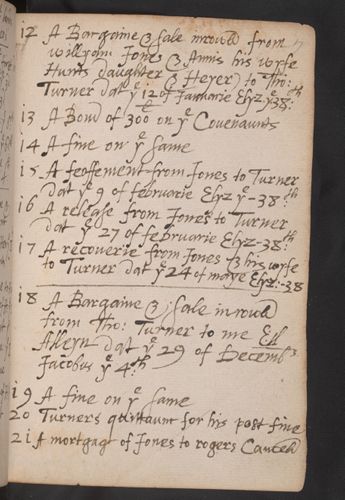 12 A Bargaine & sale inrowld from
william Jones & Annis his wyfe
Hunts daughter & Heyer) to Tho:
Turner dat yᵉ 12 of Januarie Elyz yᵉ 38:ᵗʰ
13 A Bond of 300ˡ on yᵉ Covenaunts
14 A fine on yᵉ same
15 A feoffement from Jones to Turner
dat yᵉ 9 of februarie Elyz yᵉ -38:ᵗʰ
16 A release from Jones to Turner
dat yᵉ 27 of februarie Elyz-38:ᵗʰ
17 A recoverie from Jones & his wyfe
to Turner dat yᵉ 24 of maye Elyz:-38
18 A Bargaine & sale inrowld
from Tho: Turner to me Ed
Alleyn dat yᵉ 29 of Decemb
Jacobus yᵉ 4:ᵗʰ
19 A fine on yᵉ same
20 Turners quittaunt for his post fine
21 A mortgag of Jones to rogers Canceld